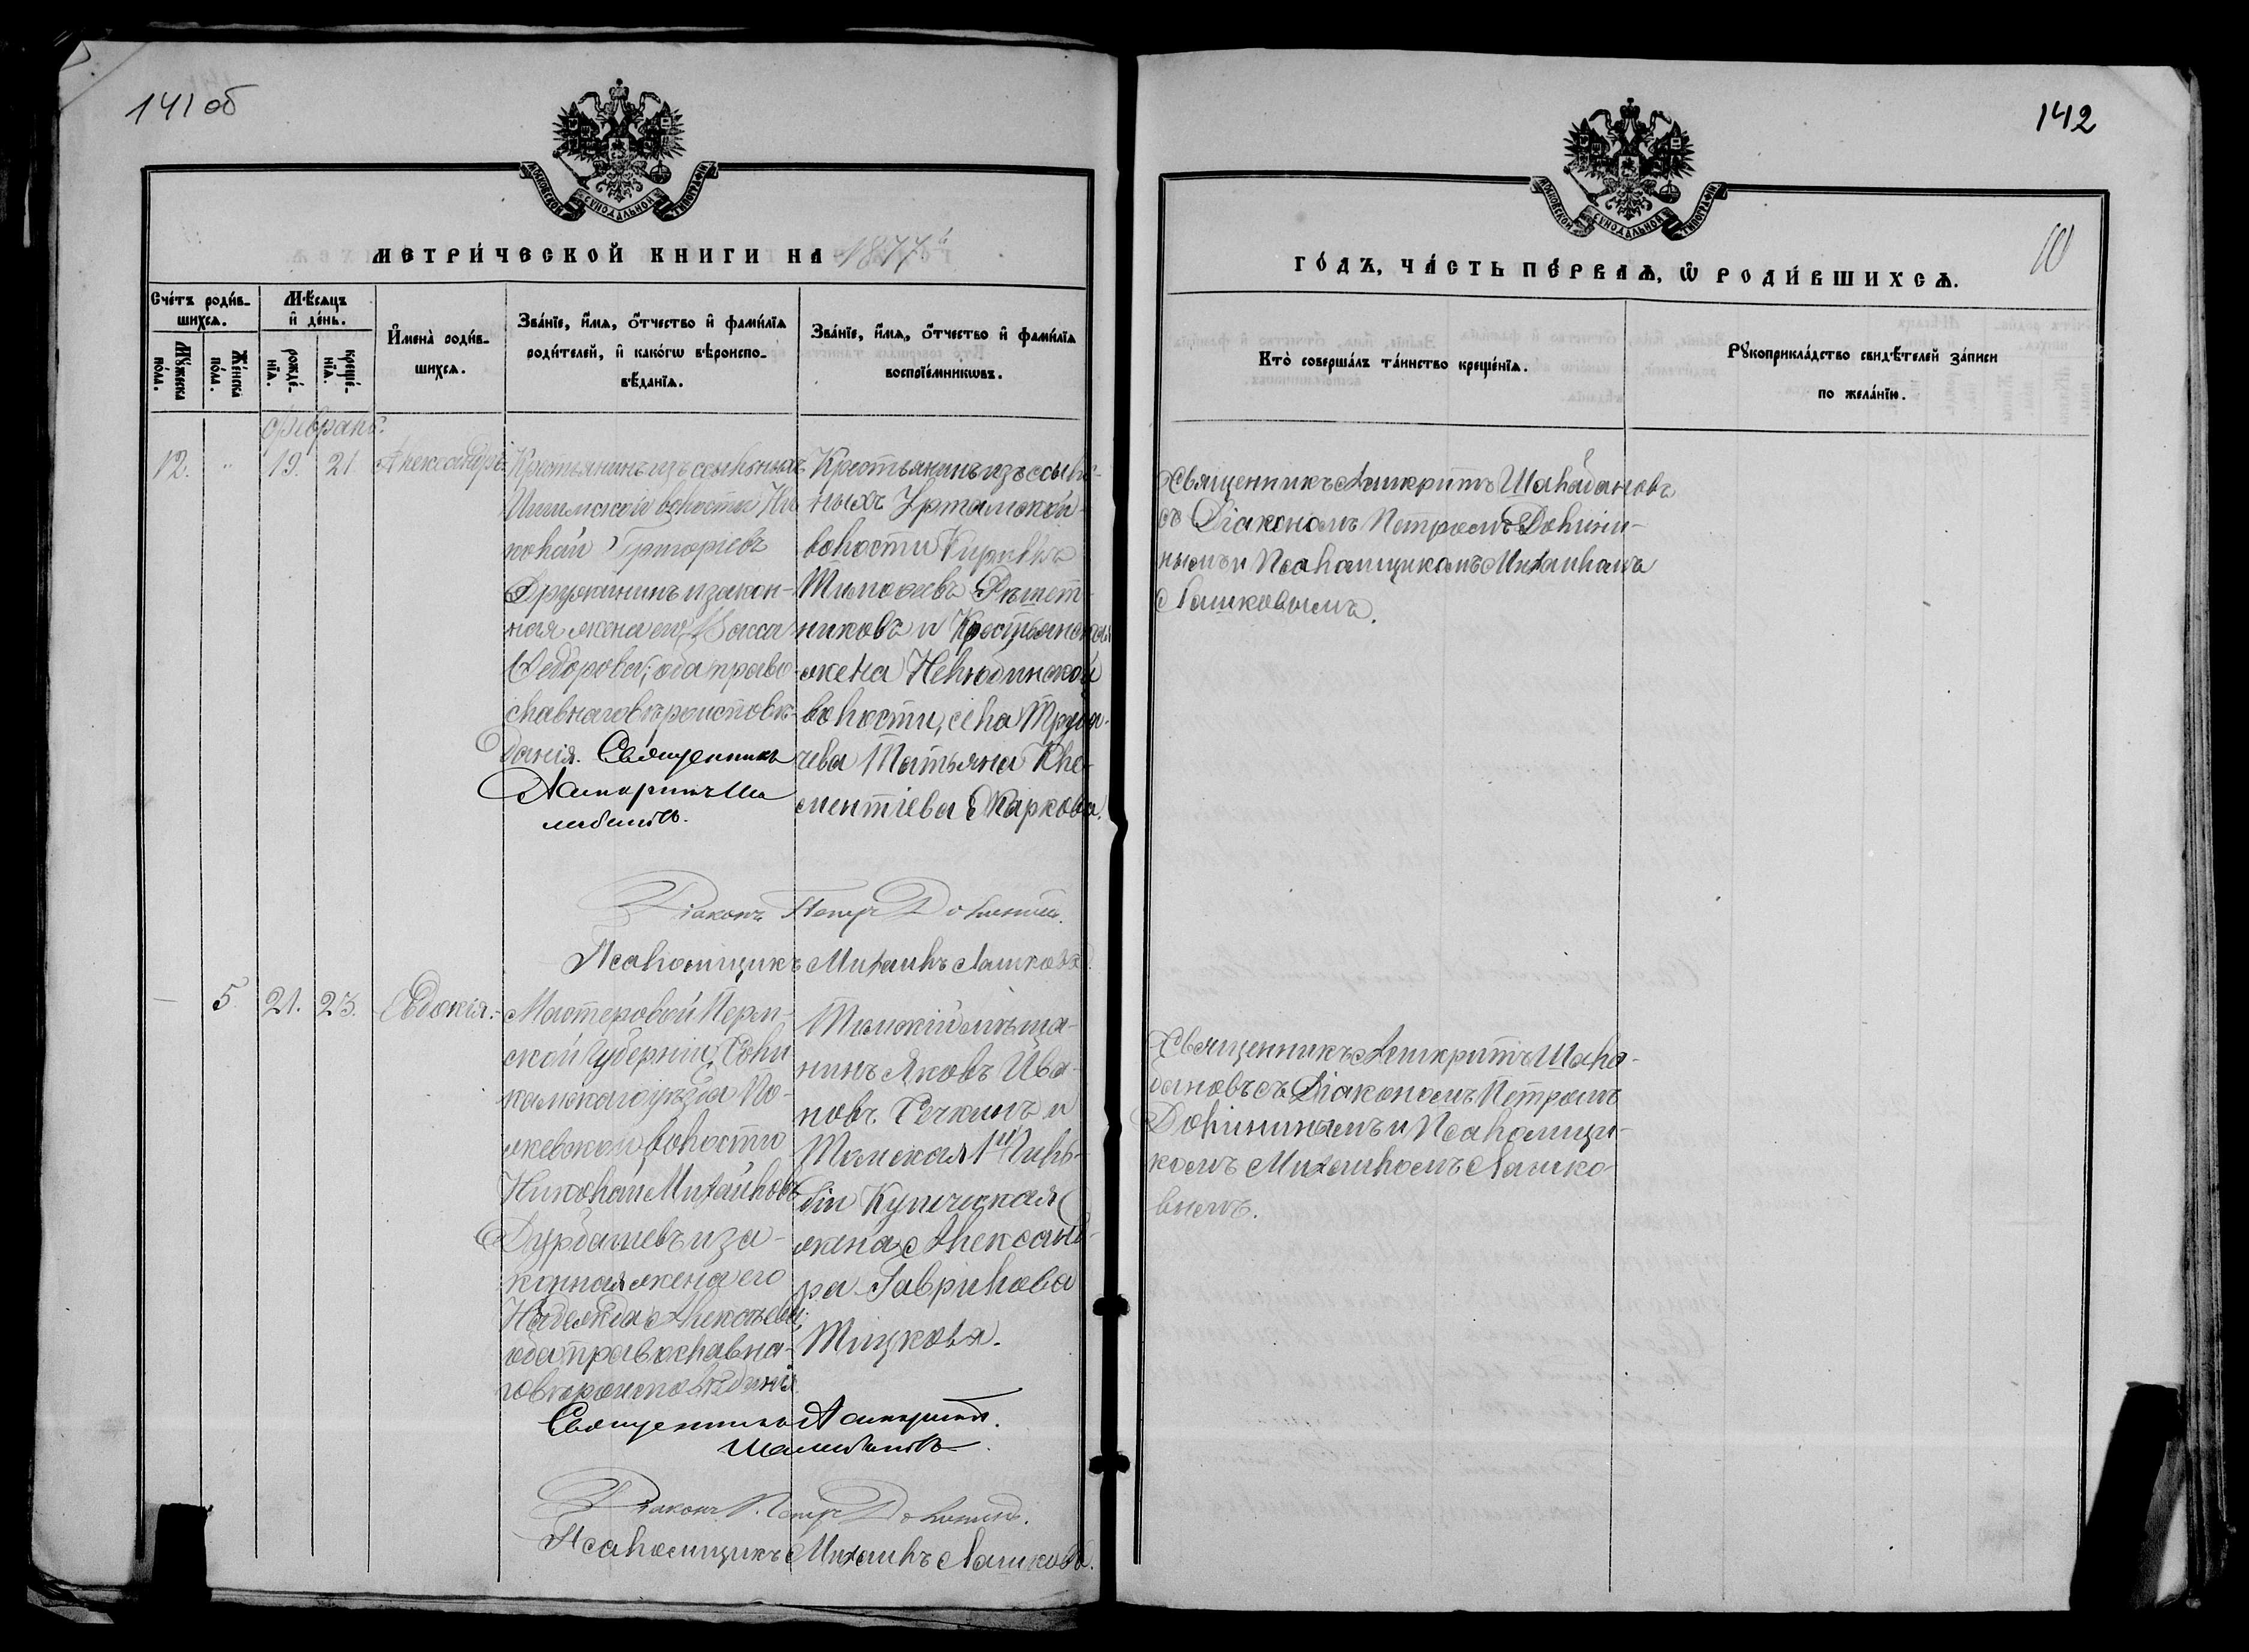 141 об
142
10
МОСКОВСКОЙ СѴНОДАЛЬНОЙ ТИПОГРАФІИ
МОСКОВСКОЙ СѴНОДАЛЬНОЙ ТИПОГРАФІИ
МЕТРИ́ЧЕСКОЙ КНИГИ НА 1877й
ГО́ДЪ, ЧА́СТЬ ПЕ́РВАѦ, Ѡ РОДИ́ВШИХСѦ.
Сче́тъ роди́в-
шихсѧ.
Мꙋ́жеска
по́ла.
Же́нска
по́ла.
Мѣ́сѧцъ
и де́нь.
рожде́-
нїѧ.
креще́-
нїѧ.
Имена̀ роди́в-
шихсѧ.
Зва́нїе, и́мѧ, ѻ́тчество и фами́лїѧ
роди́телей, и како́гѡ вѣроиспо-
вѣ́данїѧ.
Зва́нїе, и́мѧ, ѻ́тчество и фами́лїѧ
воспрїе́мникѡвъ.
Кто̀ соверша́лъ та́инство креще́нїѧ.
Рꙋкоприкла́дство свидѣ́телей за́писи
по жела́нїю.
Февраль.
12. " 19. 21. Александръ
Крестьянинъ изъ ссыльныхъ
Ишимской волости Ни-
колай Григорьевъ
Дружининъ и закон-
ная жена его Васса
Федорова; оба право-
славнаго вѣроисповѣ-
данія. Священникъ
Асинкритъ Ша
лабановъ.
Крестьянинъ изъ ссыль-
ныхъ Уртамской
волости Кириллъ
Тимофеевъ Рѣшет-
никовъ и Крестьянская
жена Нелюбинской
волости, села Труба-
чева Татьяна Кле-
ментіева Жаркова.
Священникъ Асинкритъ Шалабановъ
съ Діакономъ Петромъ Долини-
нымъ и Псаломщикомъ Михаиломъ
Лашковымъ.
Діаконъ Петръ Долининъ.
Псаломщикъ Михаилъ Лашковъ.
— 5. 21. 23. Евдокія.
Мастеровой Перм-
ской Губерніи, Соли
камскаго уѣзда По-
жевской волости
Николай Михайловъ
Дурбажевъ и за-
конная жена его
Надежда Алексѣева;
оба православна-
го вѣроисповѣданія.
Томскій мѣща-
нинъ Яковъ Ива-
новъ Сечкинъ и
Томская 1й Гиль-
діи Купеческая
жена Александ-
ра Гаврилова
Тецкова.
Священникъ Асинкритъ Шала-
бановъ съ Діакономъ Петромъ
Долининымъ и Псаломщи-
комъ Михаиломъ Лашко-
вымъ.
Священникъ Асинкритъ
Шалабановъ.
Діаконъ Петръ Долининъ.
Псаломщикъ Михаилъ Лашковъ.